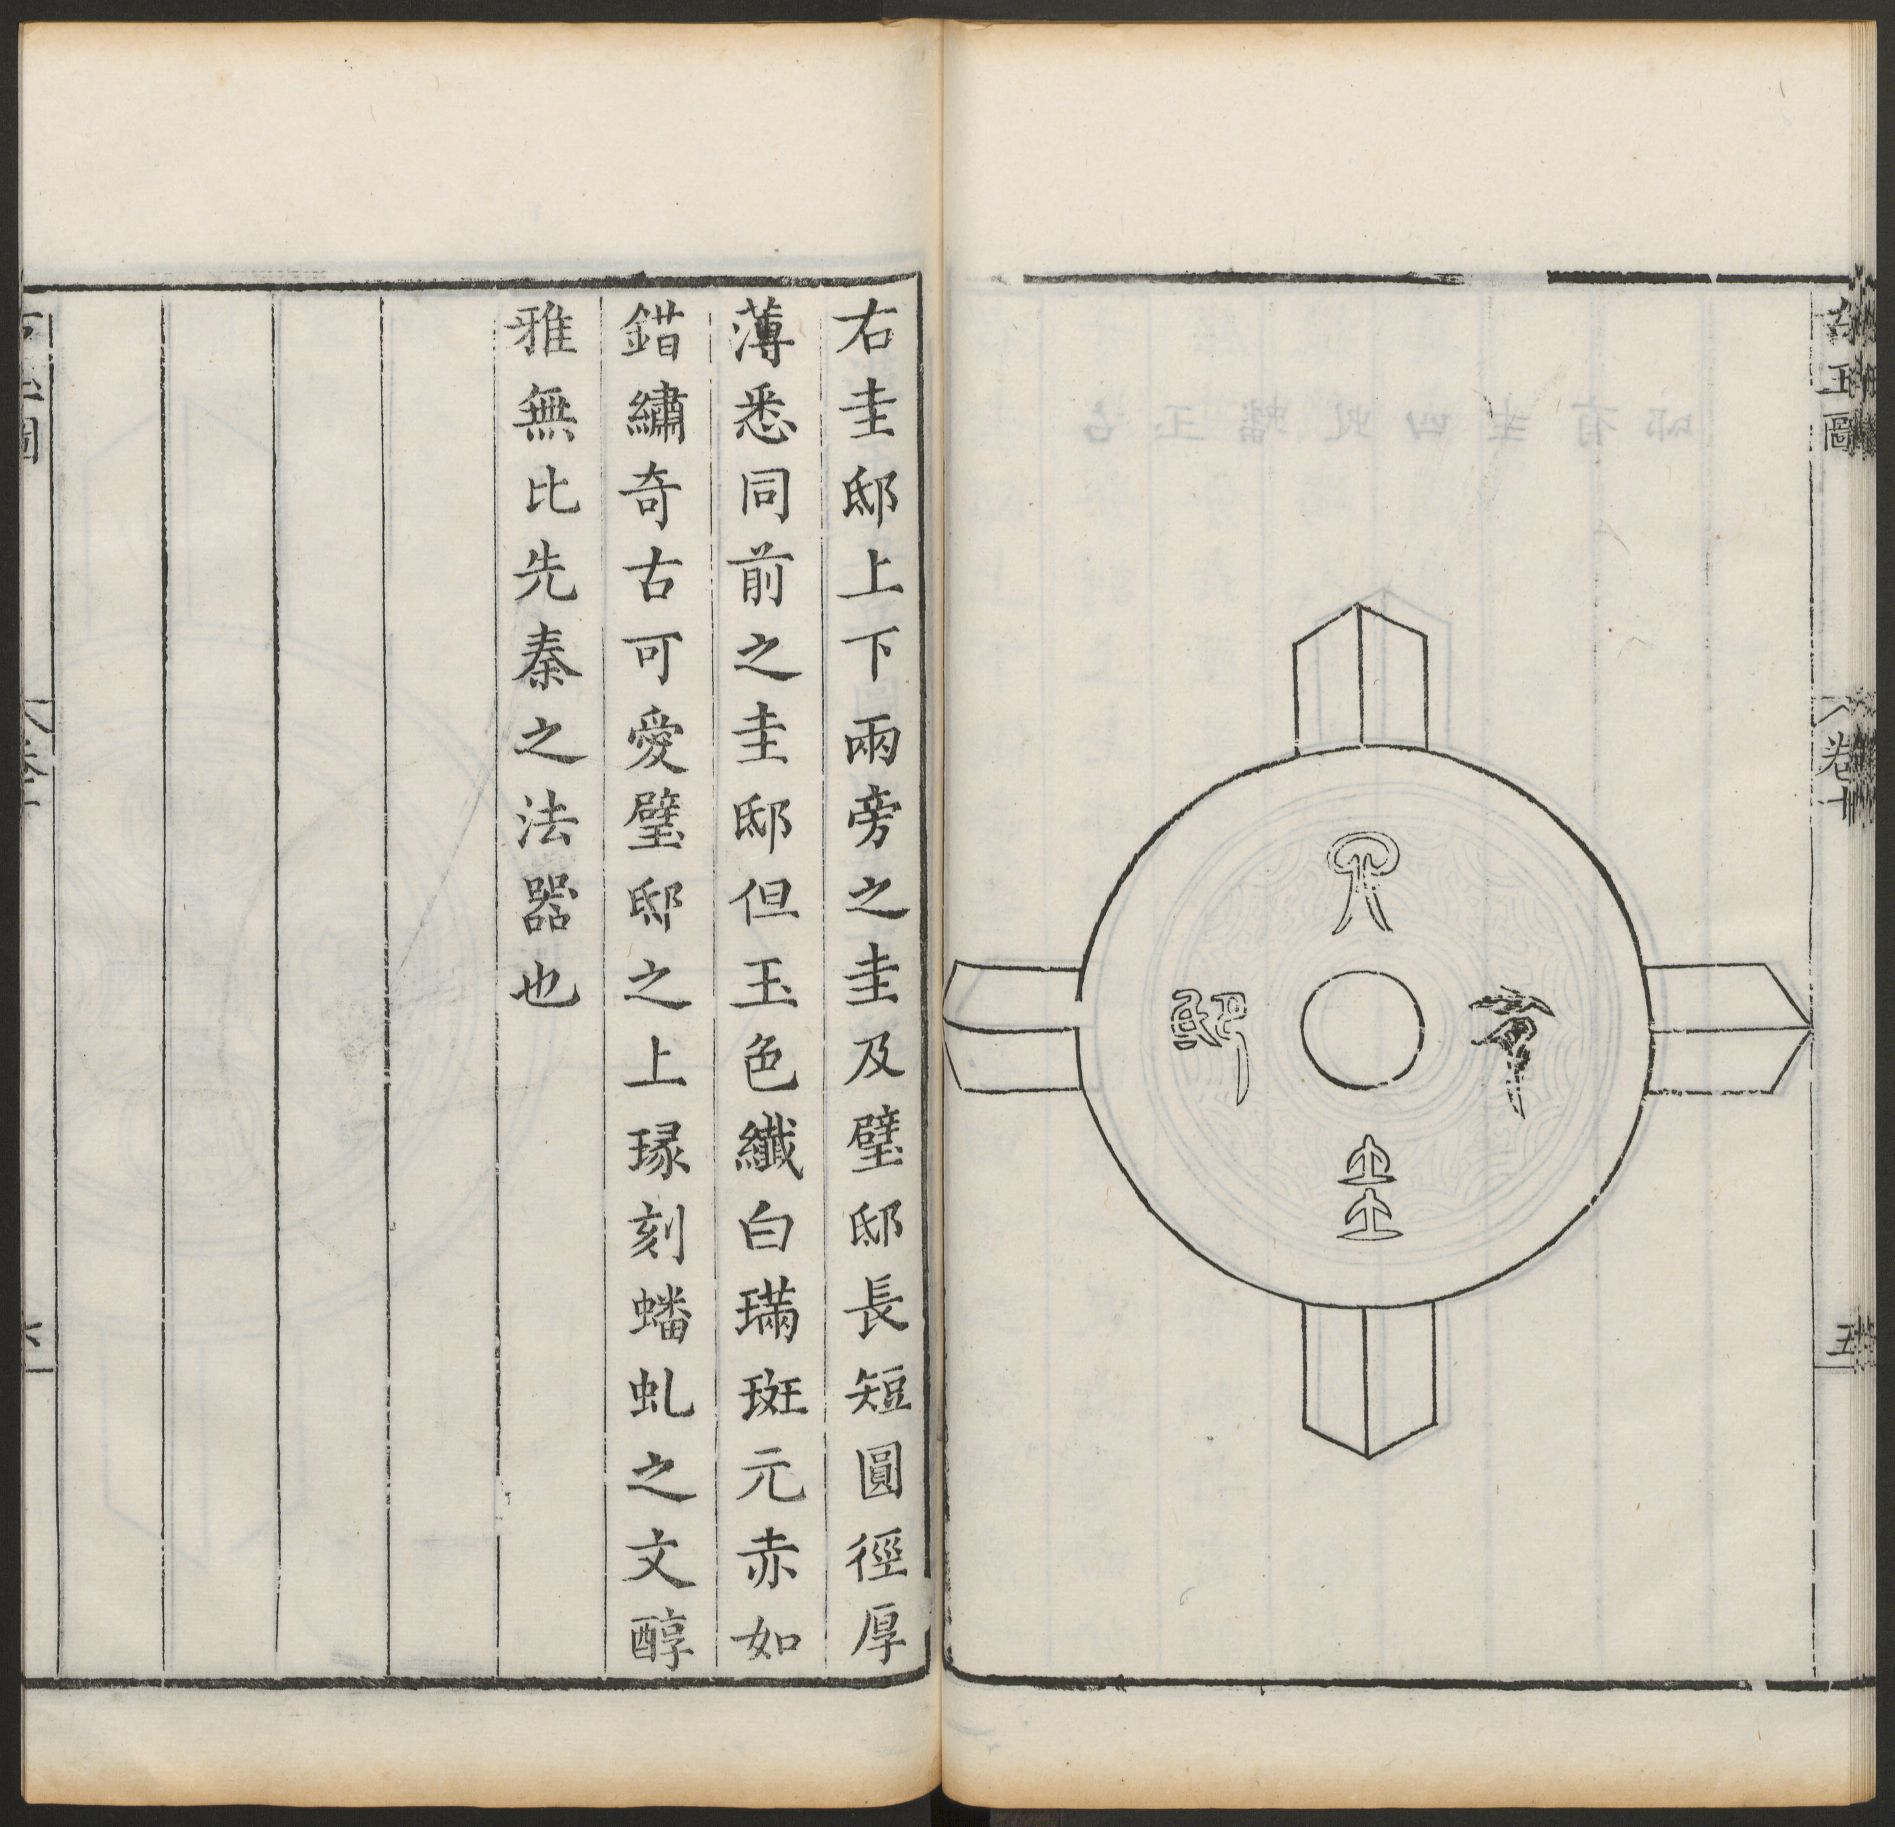 古玉圖
卷十
五
四
圭
有
邸
右圭邸上下兩旁之圭及璧邸長短圓徑厚
薄悉同前之圭邸但玉色纖白璊斑元赤如
錯繡奇古可愛璧邸之上琢刻蟠虬之文醇
雅無比先秦之法器也